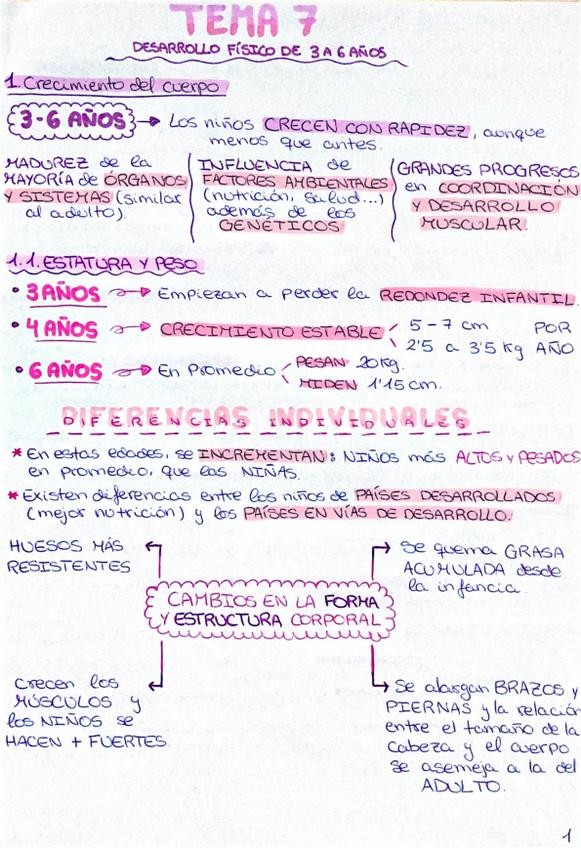 TEMA 7
DESARROLLO FÍSICO DE 3 A 6 AÑOS
1. Crecimiento del cuerpo
3-6 AÑOS → Los niños CRECEN CON RAPIDEZ, aunque
menos que antes.
MADUREZ de la
MAYORÍA de ÓRGANOS
Y SISTEMAS (similar
al adulto).
INFLUENCIA de
FACTORES AMBIENTALES
(nutrición, salud...)
además de los
GENÉTICOS
GRANDES PROGRESOS
en COORDINACIÓN
Y DESARROLLO
MUSCULAR.
1.1. ESTATURA Y PESO
• 3 AÑOS → Empiezan a perder la REDONDEZ INFANTIL.
• 4 AÑOS → CRECIMIENTO ESTABLE 5-7 cm POR
2'5 a 3'5 kg AÑO
• 6 AÑOS → En Promedio PESAN 20kg.
MIDEN 1'15 cm.
DIFERENCIAS INDIVIDUALES
* En estas edades, se INCREMENTAN: NIÑOS más ALTOS Y PESADOS
en promedio, que las NIÑAS.
* Existen diferencias entre los niños de PAÍSES DESARROLLADOS
(mejor nutrición) y los PAÍSES EN VÍAS DE DESARROLLO.
HUESOS MÁS
RESISTENTES
Se quema GRASA
ACUMULADA desde
la infancia.
CAMBIOS EN LA FORMA
Y ESTRUCTURA CORPORAL
Crecen los
MÚSCULOS y
los NIÑOS se
HACEN + FUERTES.
Se alargan BRAZOS y
PIERNAS y la relación
entre el tamaño de la
cabeza y el cuerpo
se asemeja a la del
ADULTO.
1